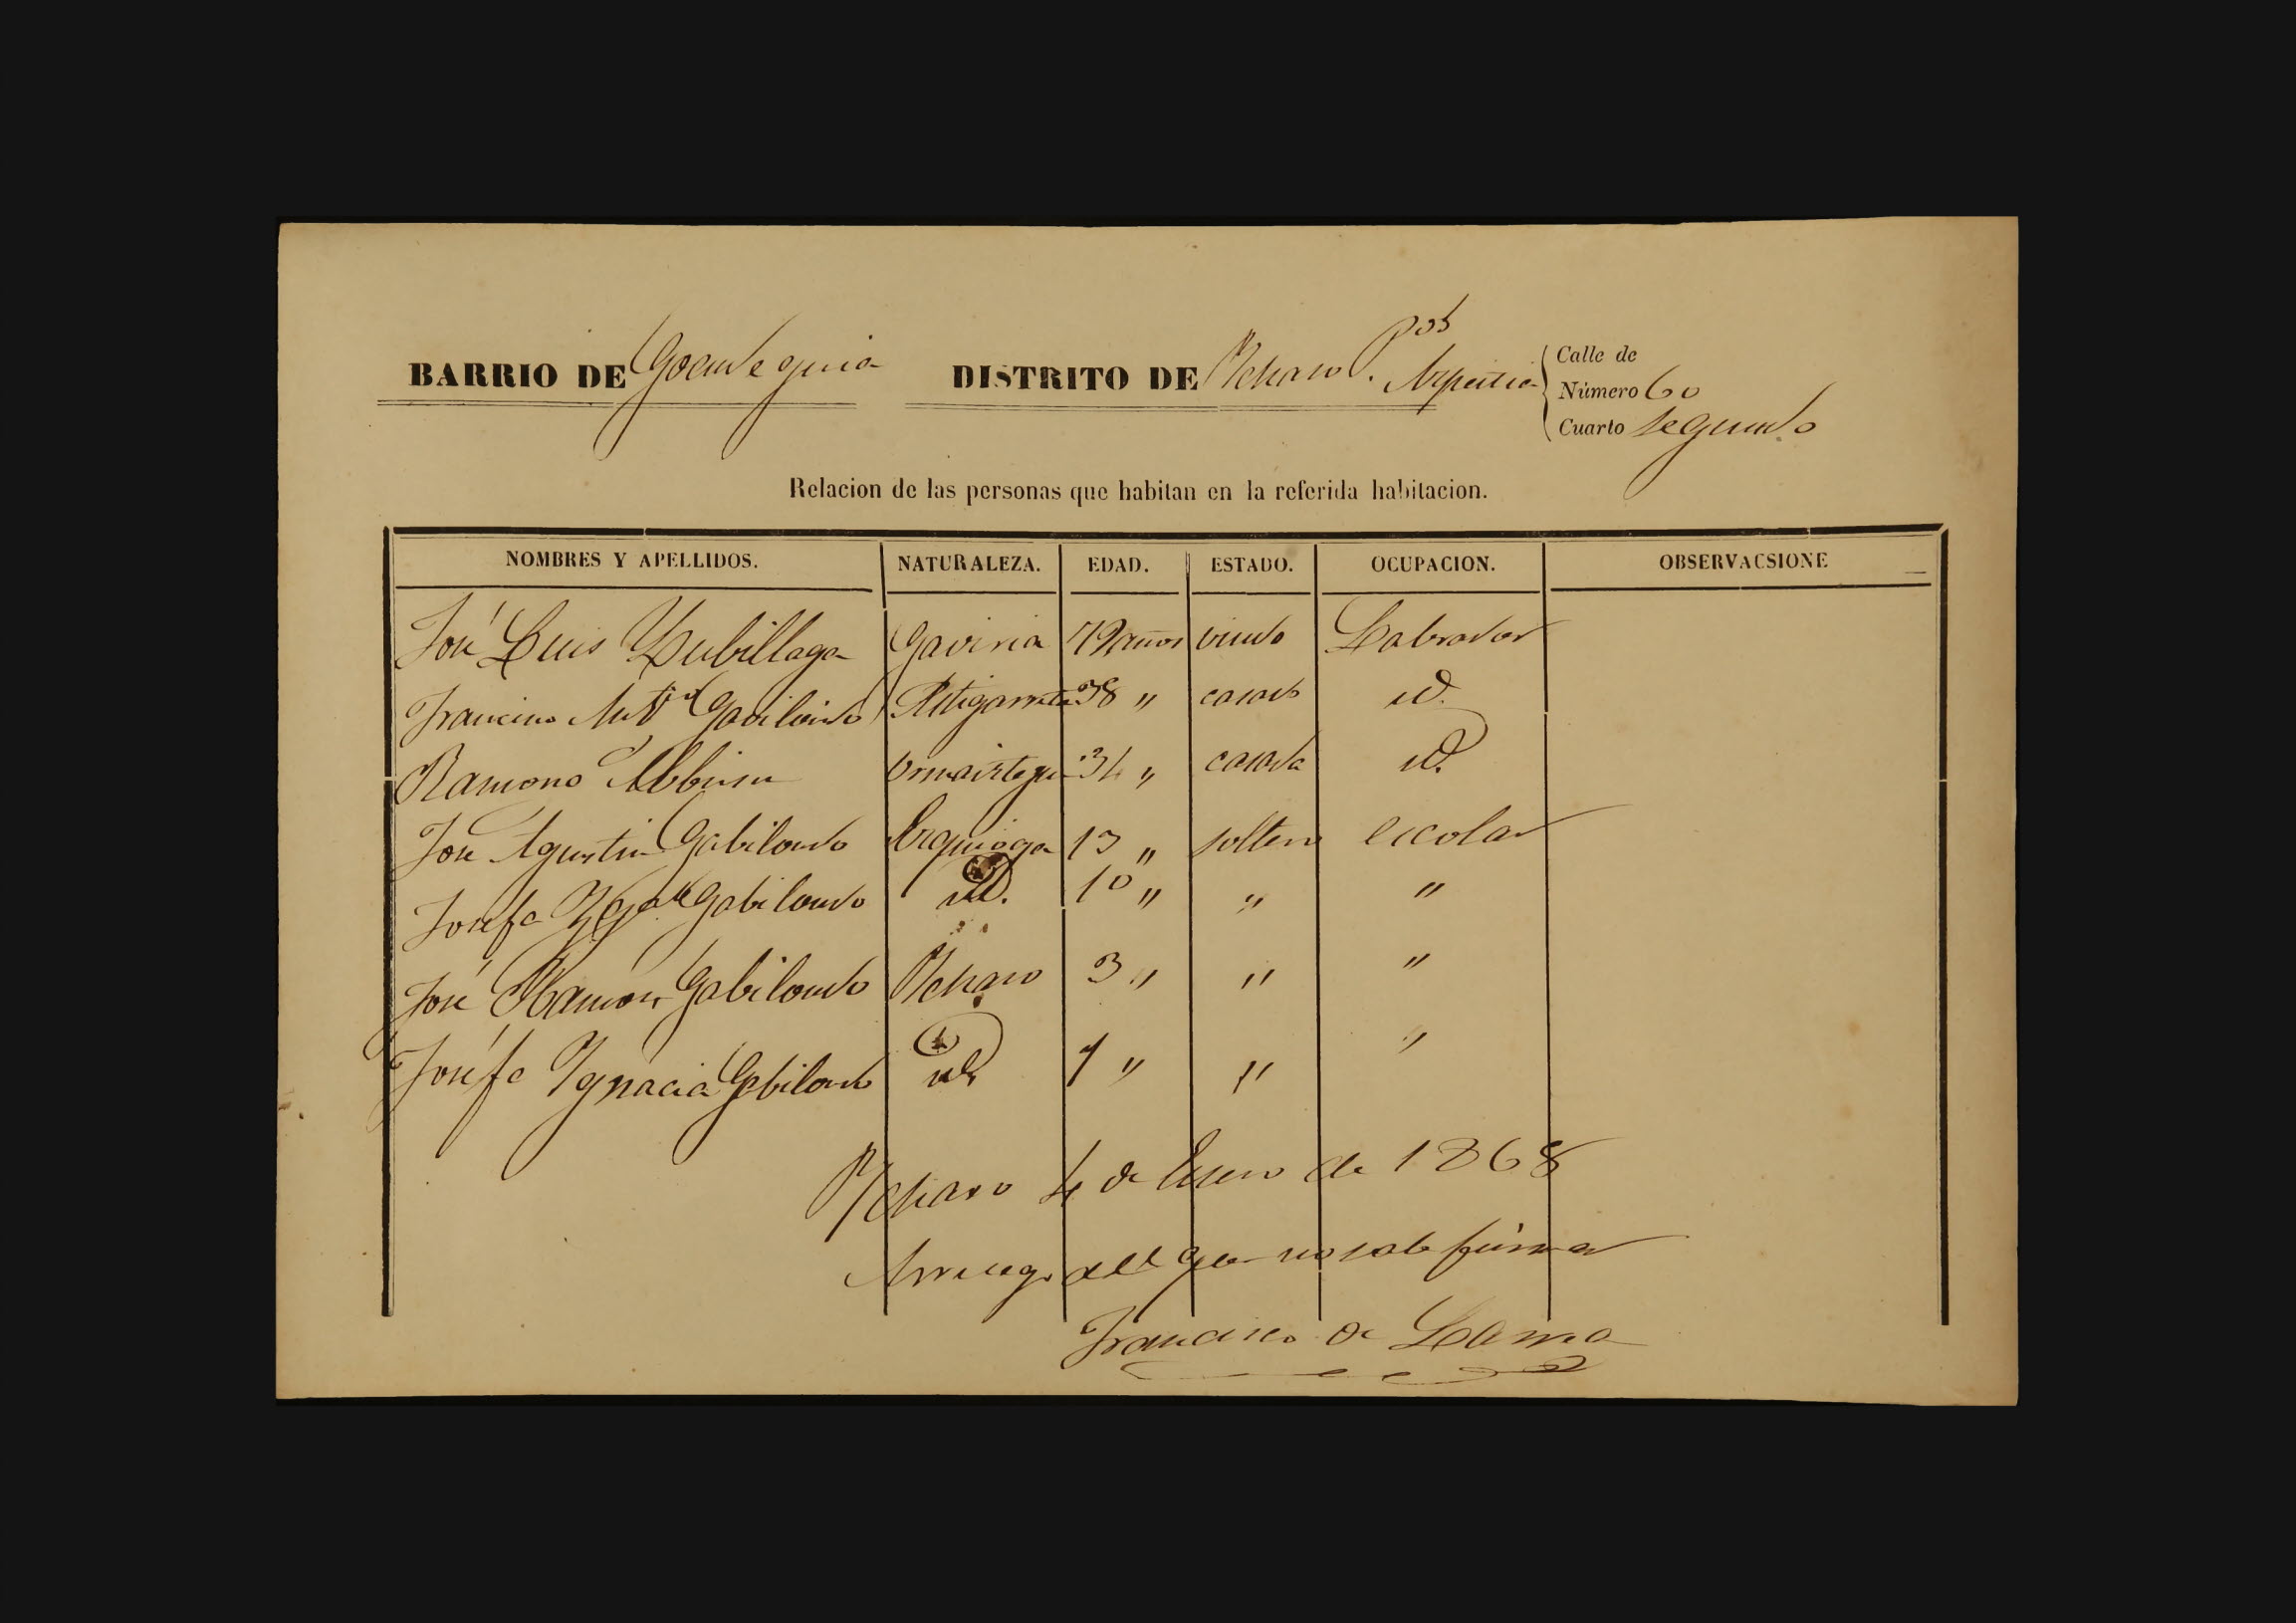 BARRIO DE Goendeguia DISTRITO DE Ychaso Pdo. Azpeitia Calle de
Número 60
Cuarto segundo
Relacion de las personas que habitan en la referida habitacion.
NOMBRES Y APELLIDOS. NATURALEZA. EDAD. ESTADO. OCUPACION. OBSERVACSIONE
José Luis Zubillaga Gaviria 72 años viudo Labrador
Francisco Gabilondo Astigarreta 38 " casado id.
Ramona Albisu Ormaiztegui 34 " casada id.
José Agustin Gabilondo Ezquioga 13 " soltero escolar
Josefa Gabilondo id. 10 " " "
José Ramon Gabilondo Ychaso 3 " " "
Josefa Ygnacia Gabilondo id. 1 " " "
Ychaso 4 de Enero de 1868
Arruego del que no sabe firmar
Francisco de